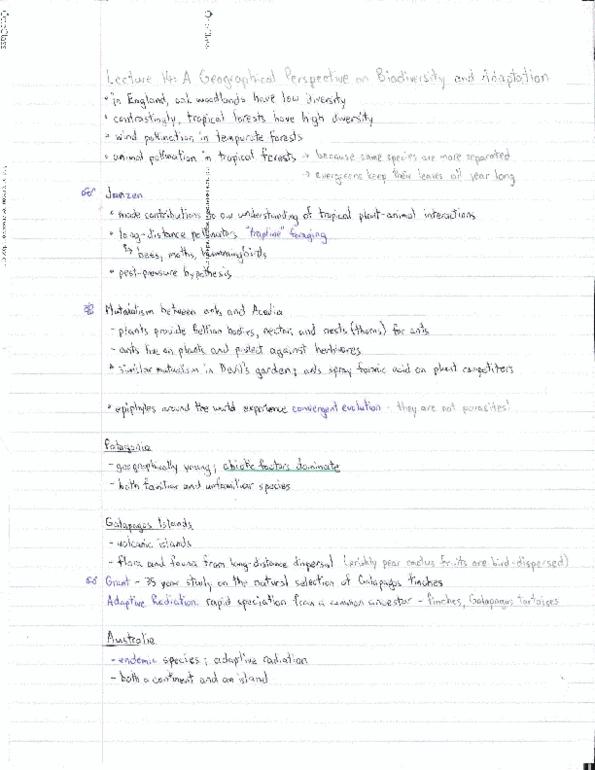 Lecture 14: A Geographical Perspective on Biodiversity and Adaptation
• in England, oak woodlands have low diversity
• contrastingly, tropical forests have high diversity
• wind pollination in temperate forests
• animal pollination in tropical forests → because same species are more separated
→ evergreens keep their leaves all year long
Janzen
• made contributions to our understanding of tropical plant-animal interactions
• long-distance pollinators "trapline" foraging
↳ bees, moths, hummingbirds
• pest-pressure hypothesis
Mutualism between ants and Acacia
- plants provide Beltian bodies, nectar, and nests (thorns) for ants
- ants live on plants and protect against herbivores
* similar mutualism in Devil's garden; ants spray formic acid on plant competitors
• epiphytes around the world experience convergent evolution - they are not parasites!
Patagonia
- geographically young; abiotic factors dominate
- both familiar and unfamiliar species
Galapagos Islands
- volcanic islands
- flora and fauna from long-distance dispersal (prickly pear cactus fruits are bird-dispersed)
Grant - 35 year study on the natural selection of Galapagos finches
Adaptive Radiation: rapid speciation from a common ancestor - finches, Galapagos tortoises
Australia
- endemic species; adaptive radiation
- both a continent and an island
OneClass